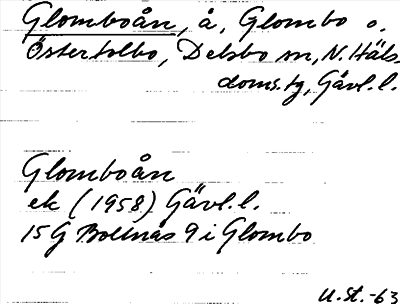 Glomboån, å, Glombo o.
Östertolbo, Delsbo sn, N. Häls.
doms.tg, Gävl.l.
Glomboån
ek (1958) Gävl.l.
15G Bollnäs 9i Glombo
U.St.-63